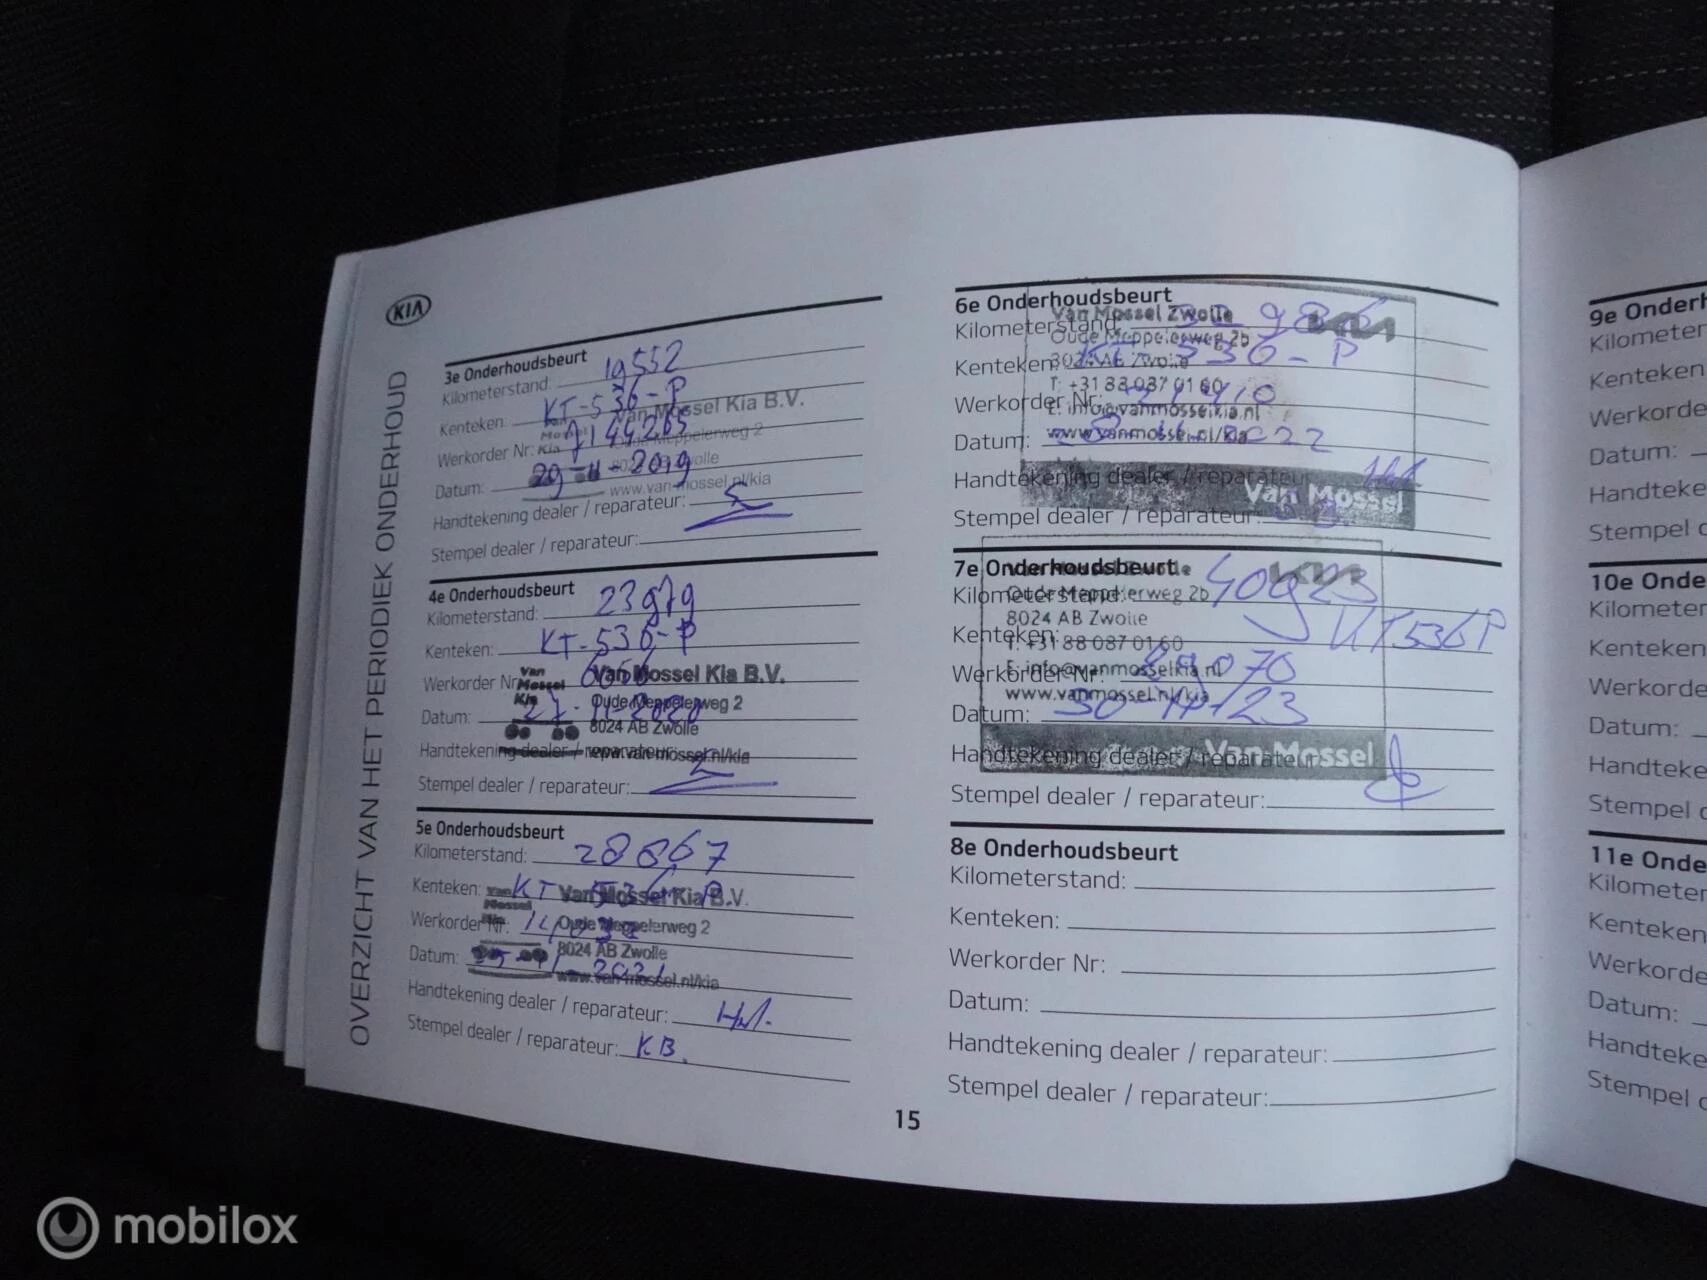 KIA
OVERZICHT VAN HET PERIODIEK ONDERHOUD
3e Onderhoudsbeurt
Kilometerstand: 19552
Kenteken: KT-536-P
Werkorder Nr:
Datum: 29-11-2019
Handtekening dealer / reparateur:
Stempel dealer / reparateur:
Van Mossel Kia
Van Mossel Kia B.V.
Oude Meppelerweg 2
8024 AB Zwolle
www.van-mossel.nl/kia
4e Onderhoudsbeurt
Kilometerstand: 23979
Kenteken: KT-536-P
Werkorder Nr:
Datum: 2020
Handtekening dealer / reparateur:
Stempel dealer / reparateur:
Van Mossel Kia
Van Mossel Kia B.V.
Oude Meppelerweg 2
8024 AB Zwolle
www.van-mossel.nl/kia
5e Onderhoudsbeurt
Kilometerstand: 28867
Kenteken: KT 536 P
Werkorder Nr:
Datum: 2021
Handtekening dealer / reparateur:
Stempel dealer / reparateur: KB.
Van Mossel Kia
Van Mossel Kia B.V.
Oude Meppelerweg 2
8024 AB Zwolle
www.van-mossel.nl/kia
6e Onderhoudsbeurt
Kilometerstand: 32986
Kenteken: KT-536-P
Werkorder Nr:
Datum: 2022
Handtekening dealer / reparateur:
Stempel dealer / reparateur:
KIA
Van Mossel Zwolle
Oude Meppelerweg 2b
8024 AB Zwolle
T: +31 88 087 01 60
E: info@vanmosselkia.nl
www.vanmossel.nl/kia
Van Mossel
7e Onderhoudsbeurt
Kilometerstand: 40923
Kenteken: KT536P
Werkorder Nr:
Datum: 30-11-23
Handtekening dealer / reparateur:
Stempel dealer / reparateur:
KIA
Van Mossel Zwolle
Oude Meppelerweg 2b
8024 AB Zwolle
T: +31 88 087 01 60
E: info@vanmosselkia.nl
www.vanmossel.nl/kia
Van Mossel
8e Onderhoudsbeurt
Kilometerstand:
Kenteken:
Werkorder Nr:
Datum:
Handtekening dealer / reparateur:
Stempel dealer / reparateur:
15
9e Onderh
Kilometer
Kenteken
Werkorder
Datum:
Handteke
Stempel d
10e Onde
Kilometer
Kenteken
Werkorde
Datum:
Handteke
Stempel d
11e Onde
Kilometer
Kenteken
Werkorde
Datum:
Handteke
Stempel d
mobilox